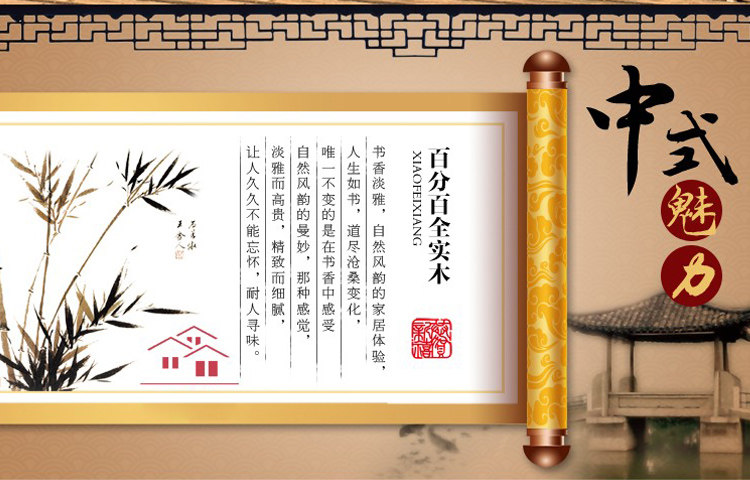 中式
魅力
百分百全实木
XIAOFEIXIANG
书香淡雅，自然风韵的家居体验，
人生如书，道尽沧桑变化，
唯一不变的是在书香中感受
自然风韵的曼妙，那种感觉，
淡雅而高贵，精致而细腻，
让人久久不能忘怀，耐人寻味。